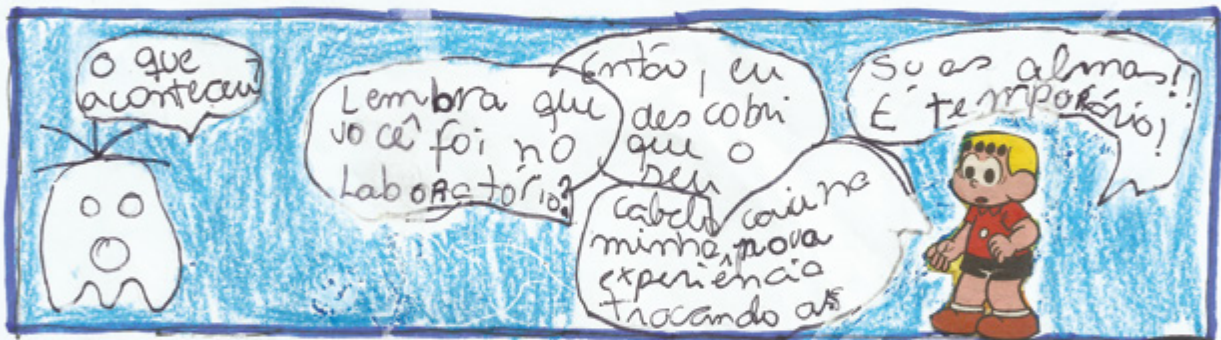 O que
aconteceu?
Lembra que
você foi no
Laboractório?
Então, eu
descobri
que o
seu
cabelo caiu na
minha nova
experiência
trocando as
suas almas!!
É temporário!